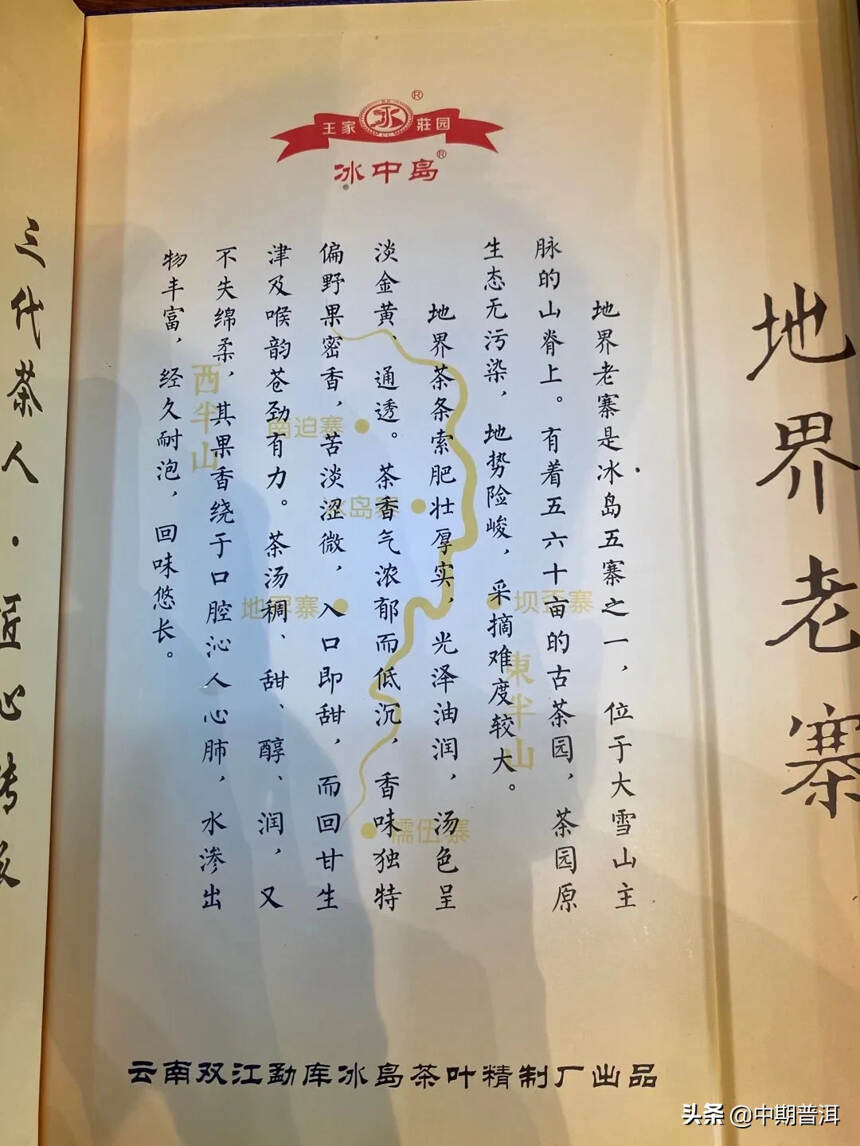 地界老寨
王家
永
莊园
®
冰中岛®
地界老寨是冰岛五寨之一，位于大雪山主
脉的山脊上。有着五六十亩的古茶园，茶园原
生态无污染，地势险峻，采摘难度较大。
地界茶条索肥壮厚实，光泽油润，汤色呈
淡金黄、通透。茶香气浓郁而低沉，香味独特
偏野果密香，苦淡涩微，入口即甜，而回甘生
津及喉韵苍劲有力。茶汤稠、甜、醇、润，又
不失绵柔，其果香绕于口腔沁人心肺，水渗出
物丰富，经久耐泡，回味悠长。
西半山
南迫寨
冰岛寨
地界寨
坝歪寨
東半山
糯伍寨
三代茶人·匠心传承
云南双江勐库冰岛茶叶精制厂出品
头条 @中期普洱